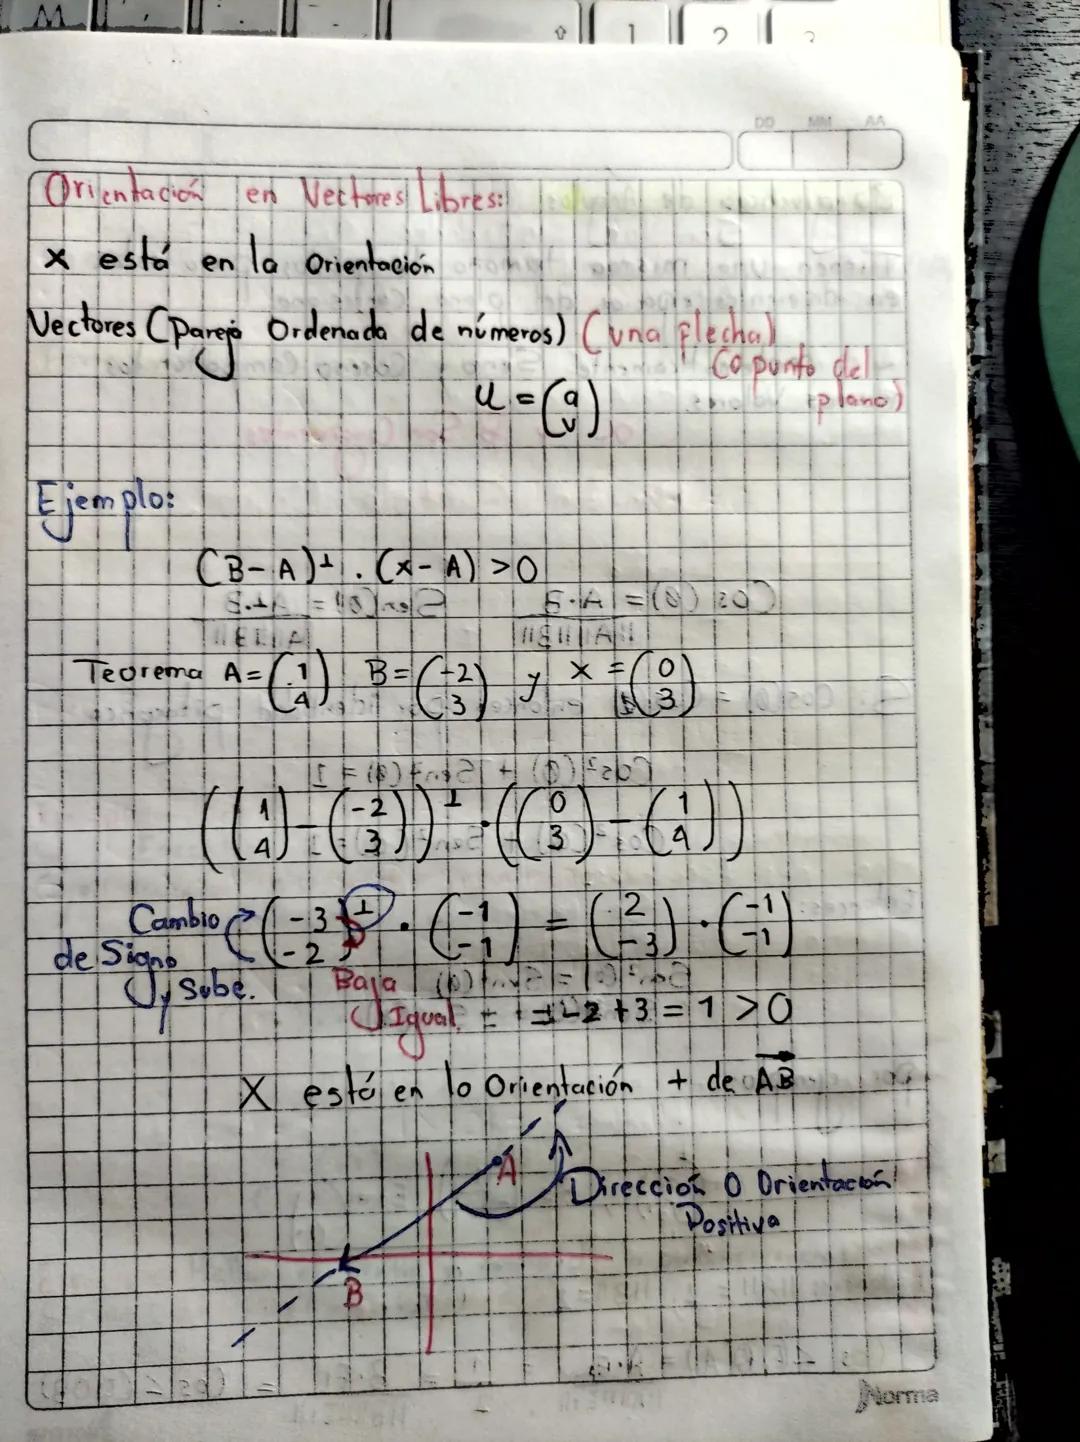 DD MM AA
Orientación en Vectores Libres:
x está en la Orientación
Vectores (Pareja Ordenada de números) (una flecha)
(o punto del
plano)
u = (a
v)
Ejemplo:
(B-A)⊥ . (x-A) > 0
Teorema A = (1
4) B = (-2
3) y x = (0
3)
((1
4) - (-2
3))⊥ · ((0
3) - (1
4))
Cambio
de Signo
y sube.
(-3
-2)⊥ · (-1
-1) = (2
-3) · (-1
-1)
Baja
Igual
= -2 + 3 = 1 > 0
X está en la Orientación + de AB
A
Dirección O Orientación
Positiva
B
Norma
1
2